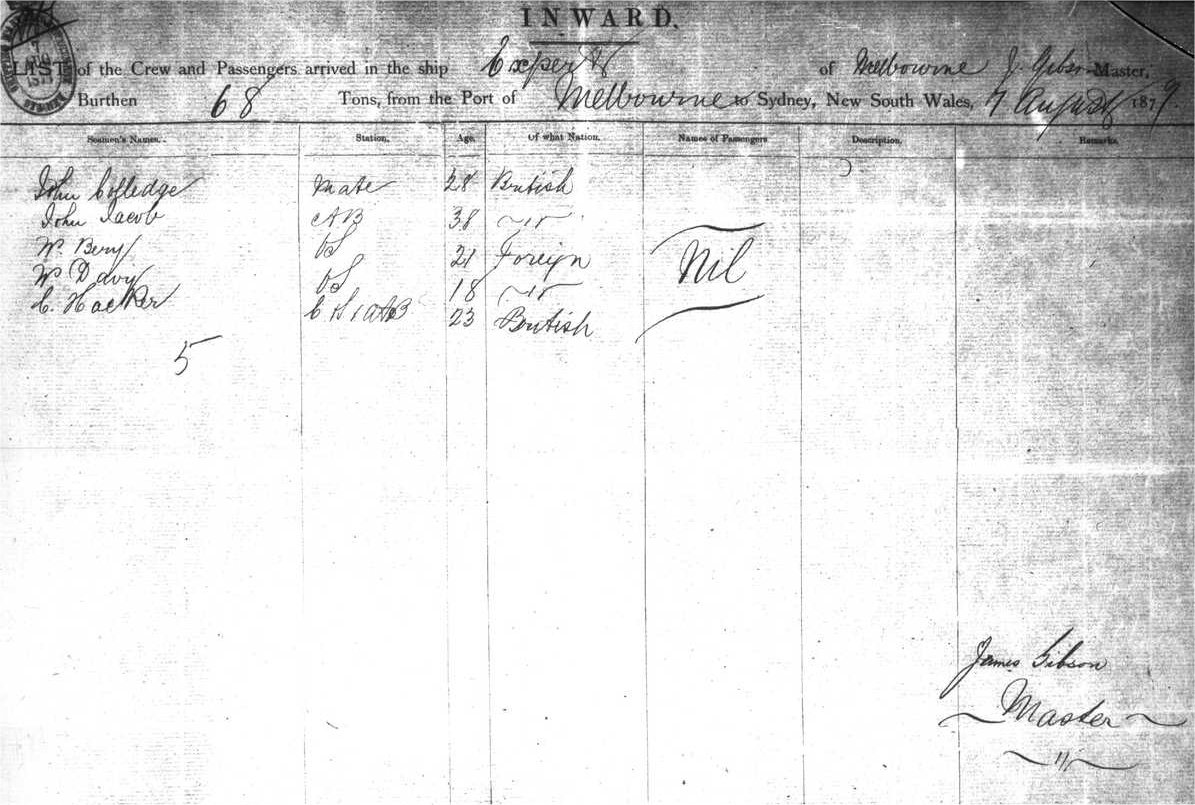 INWARD.
LIST of the Crew and Passengers arrived in the ship Expert of Melbourne J. Gibson Master,
Burthen 68 Tons, from the Port of Melbourne to Sydney, New South Wales, 7 August 1879
Seamen's Names. Station. Age. Of what Nation. Names of Passengers Description. Remarks.
John Colledge Mate 28 British
John Jacob AB 38 "
W. Bery OS 21 Foreign
W Davy OS 18 "
C. Hacker 23 British
Nil
5
James Gibson
Master